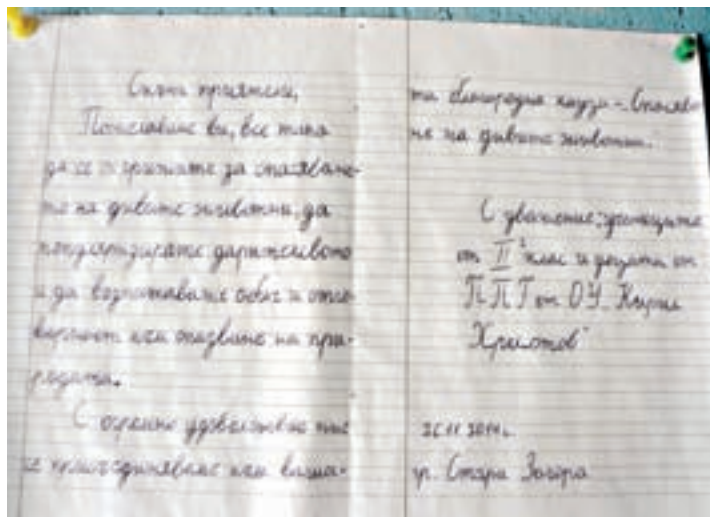 Скъпи приятели,
Пожелаваме ви, все така
да се грижите за спасяване-
то на дивите животни, да
популяризирате дарителството
и да възпитавате обич и отго-
ворност към опазване на при-
родата.
С огромно удоволствие ние
се присъединяваме към ваша-
та благородна кауза - "Спасява-
не на дивите животни."
С уважение: учениците
от II клас и децата от
ППГ от ОУ "Кирил
Христов"
гр. Стара Загора